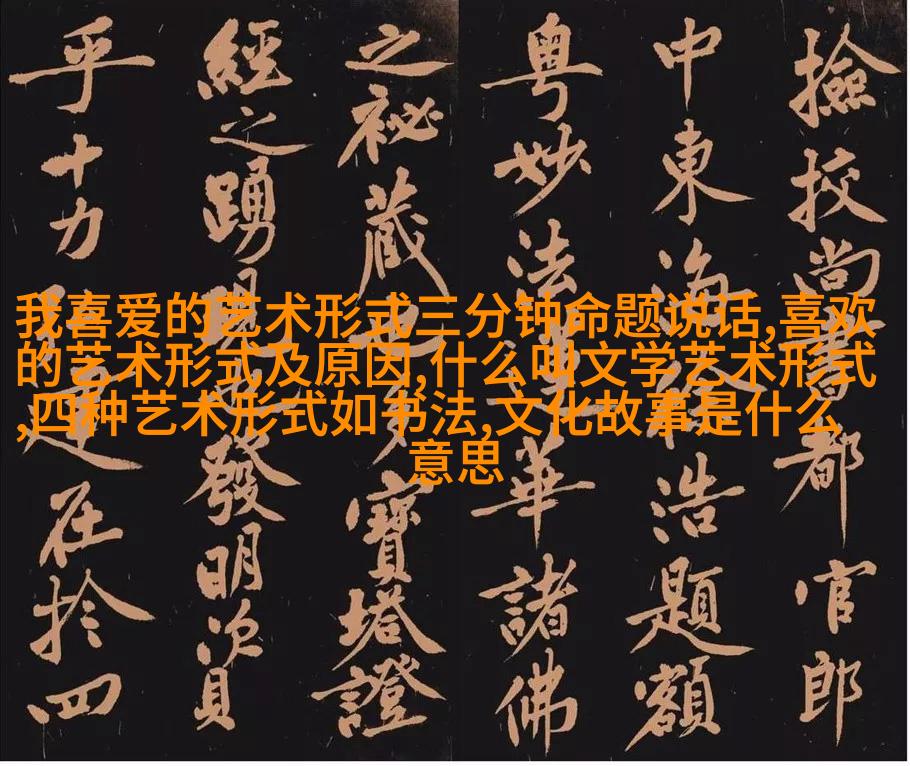 撿挍尚書都官郎
中東海徐浩題額
粤妙法蓮華諸佛
之祕藏也多寶塔證
經之踴現也發明資
乎十力弘建在於四
我喜爱的艺术形式三分钟命题说话,喜欢
的艺术形式及原因,什么叫文学艺术形式
,四种艺术形式如书法,文化故事是什么
意思